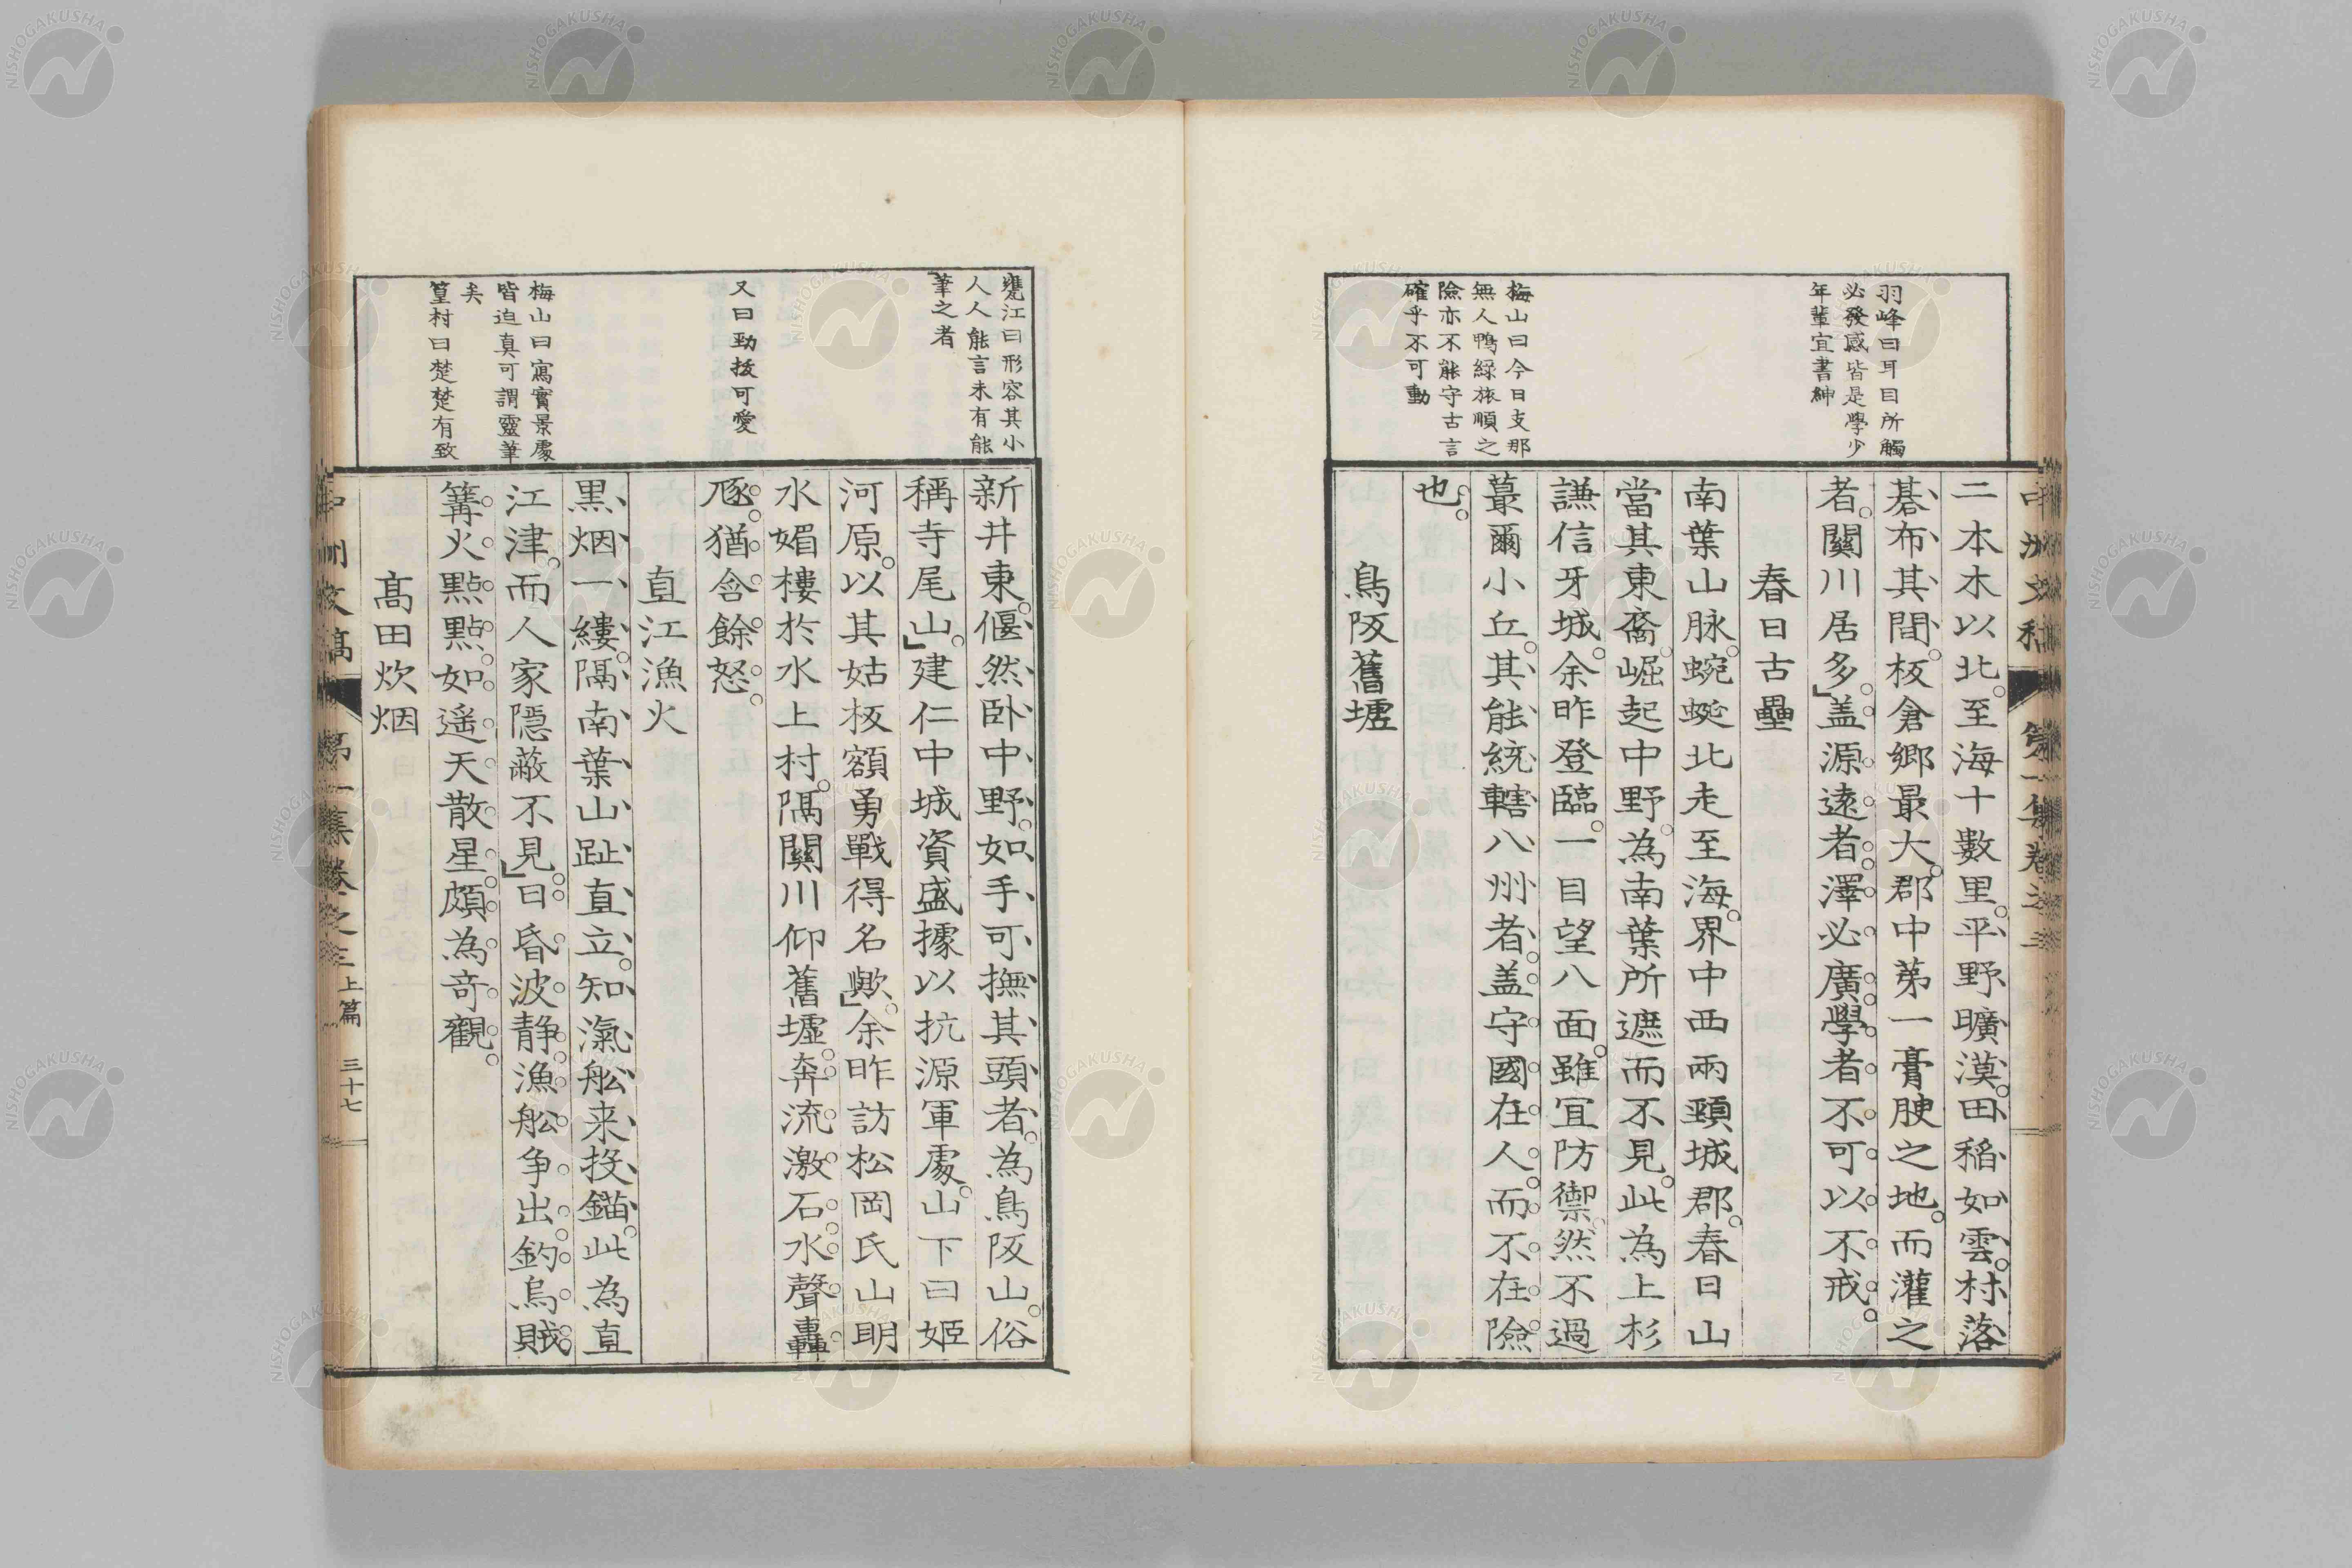 羽峰曰耳目所觸
必發感皆是學少
年輩宜書紳
梅山曰今日支那
無人鴨緑旅順之
險亦不能守古言
確乎不可動
二本木以北。至海十數里。平野曠漠。田稲如雲。村落
碁布其間。板倉郷最大。郡中第一膏腴之地。而灌之
者。關川居多」盖源遠者。澤必廣。學者。不可以不戒。
春日古壘
南葉山脉。蜿蜒北走至海。界中西兩頸城郡。春日山
當其東裔。崛起中野。為南葉所遮而不見。此為上杉
謙信牙城。余昨登臨。一目望八面。雖宜防禦。然不過
蕞爾小丘。其能統轄八州者。盖守國在人。而不在險
也。
鳥阪舊墟
甕江曰形容其小
人人能言未有能
筆之者
又曰勁拔可愛
梅山曰寫實景處
皆迫真可謂靈筆
矣
篁村曰楚楚有致
新井東。偃然卧中野。如手可撫其頭者。為鳥阪山。俗
稱寺尾山。」建仁中城資盛據以抗源軍處。山下曰姬
河原。以其姑板額勇戰得名歟。」余昨訪松岡氏山明
水媚樓於水上村。隔關川仰舊墟。奔流激石。水聲轟
豗。猶含餘怒。
直江漁火
黒烟一縷。隔南葉山趾直立。知滊舩来投錨。此為直
江津。而人家隠蔽不見」日昏波静。漁舩争出。釣烏賊。
篝火點點。如遥天散星。頗為竒觀。
髙田炊烟
中洲文稿
第一集卷之三
上篇
三十七